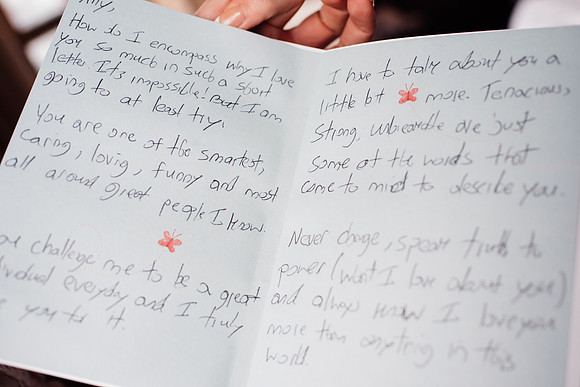 How do I encompass why I love
you so much in such a short
letter. It's impossible! But I am
going to at least try.
You are one of the smartest,
caring, lovig, funny and most
all around great people I know.
challenge me to be a great
everyday and I truly
you for it.
I have to talk about you a
little bit more. Tenacious,
Strong, are just
some of the words that
come to mind to describe you.
Never change, speak truth to
power (what I love about you)
and always know I love you
more than anything in this
world.